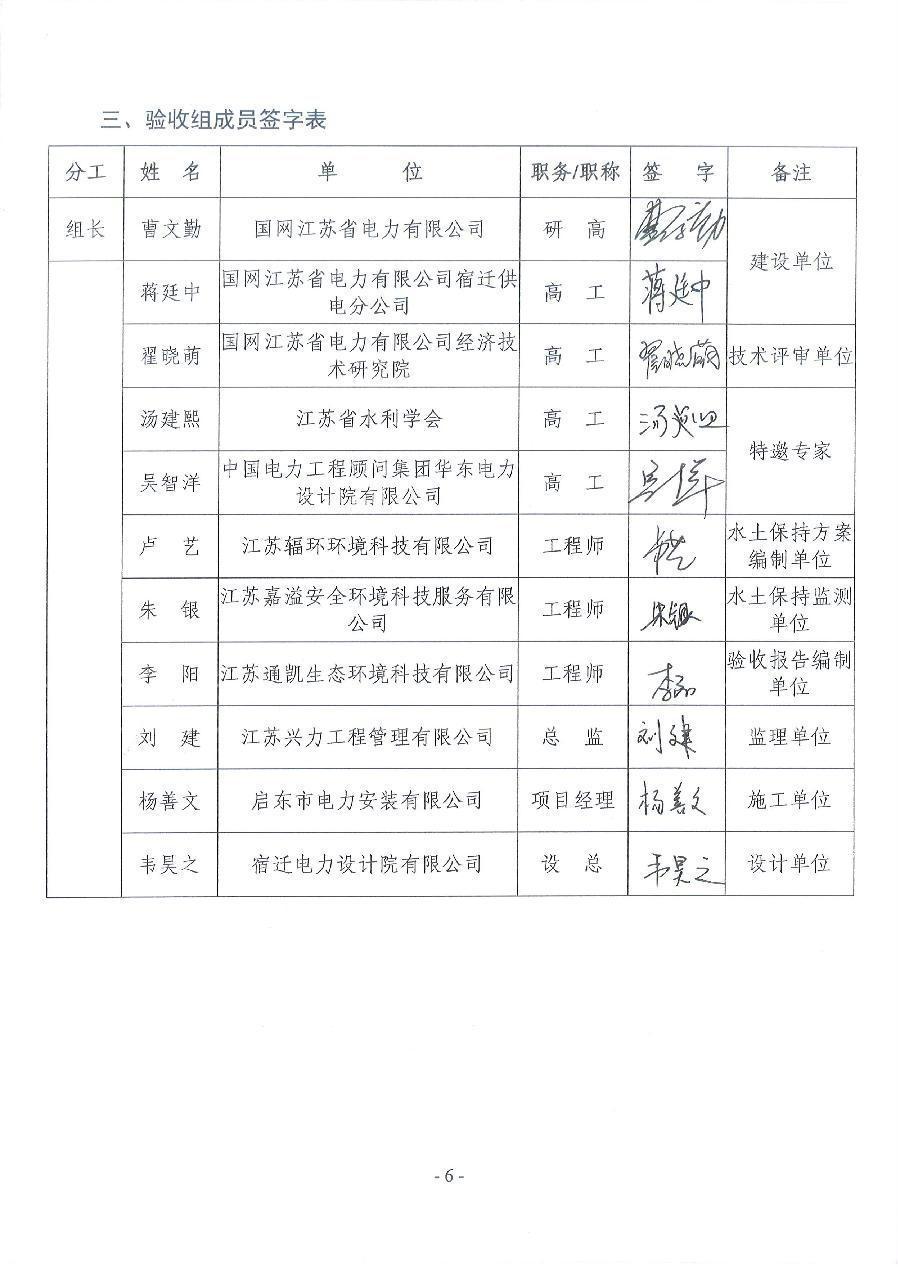 三、验收组成员签字表
分工 姓 名 单 位 职务/职称 签 字 备注
组长 曹文勤 国网江苏省电力有限公司 研 高 曹文勤 建设单位
蒋廷中 国网江苏省电力有限公司宿迁供
电分公司 高 工 蒋廷中
翟晓萌 国网江苏省电力有限公司经济技
术研究院 高 工 翟晓萌 技术评审单位
汤建熙 江苏省水利学会 高 工 特邀专家
吴智洋 中国电力工程顾问集团华东电力
设计院有限公司 高 工
卢 艺 江苏辐环环境科技有限公司 工程师 水土保持方案
编制单位
朱 银 江苏嘉溢安全环境科技服务有限
公司 工程师 朱银 水土保持监测
单位
李 阳 江苏通凯生态环境科技有限公司 工程师 李阳 验收报告编制
单位
刘 建 江苏兴力工程管理有限公司 总 监 刘建 监理单位
杨善文 启东市电力安装有限公司 项目经理 杨善文 施工单位
韦昊之 宿迁电力设计院有限公司 设 总 韦昊之 设计单位
- 6 -